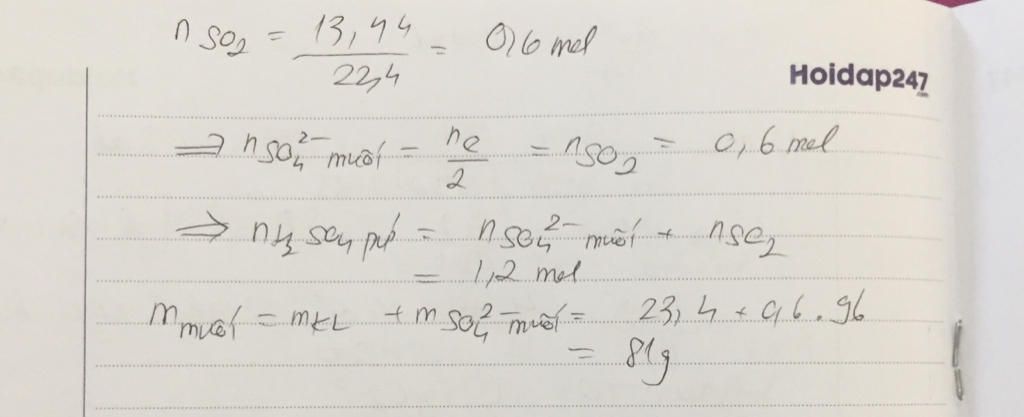 n SO₂ = 13,44/22,4 = 0,6 mol
Hoidap247
⇒ n SO₄²⁻ muối = ne/2 = n SO₂ = 0,6 mol
⇒ n H₂SO₄ pứ = n SO₄²⁻ muối + n SO₂
= 1,2 mol
m muối = mKL + m SO₄²⁻ muối = 23,4 + 0,6 . 96
= 81g